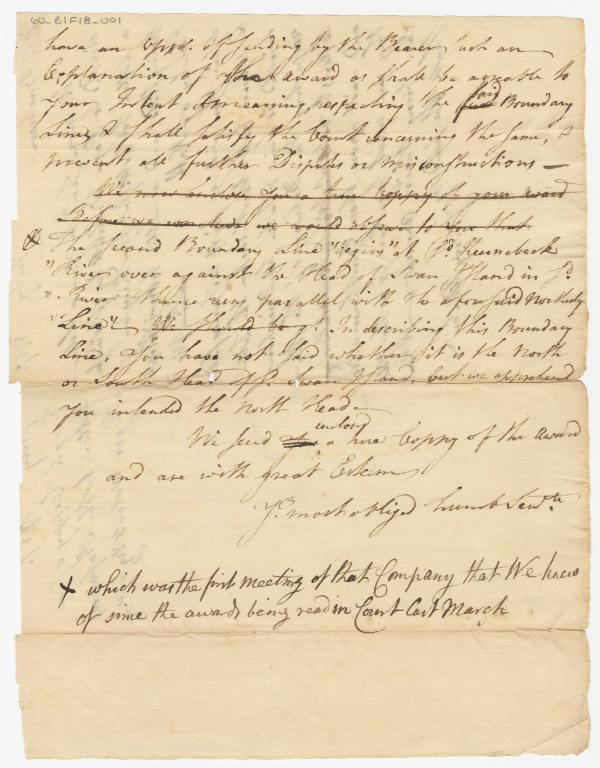 60-B1F18-001
have an Oppo. of sending by the Bearer such an
Explanation of the award as shall be agreable to
your Intent & meaning, respecting the said Boundary
Lines & shall satisfy the Court concerning the same, &
prevent all further Disputes or misconstructions —
We now inclose you a true Coppy of your award
Before we conclude we would observe to you that
The Second Boundary Line "begins" at sd. Kennebeck
"River over against the Head of Swan Island in sd.
"River thence runs parallel with the aforesaid Northerly
"Line". We should be In describing this Boundary
Line, you have not said whether it is the North
or South Head of sd. Swan Island, but we apprehend
you intended the North Head.
We send inclosd a true Coppy of the award
and are with great Esteem
Yr. most obliged humb Servts.
x which was the first meeting of that Company that We knew
of since the award being read in Court Last March